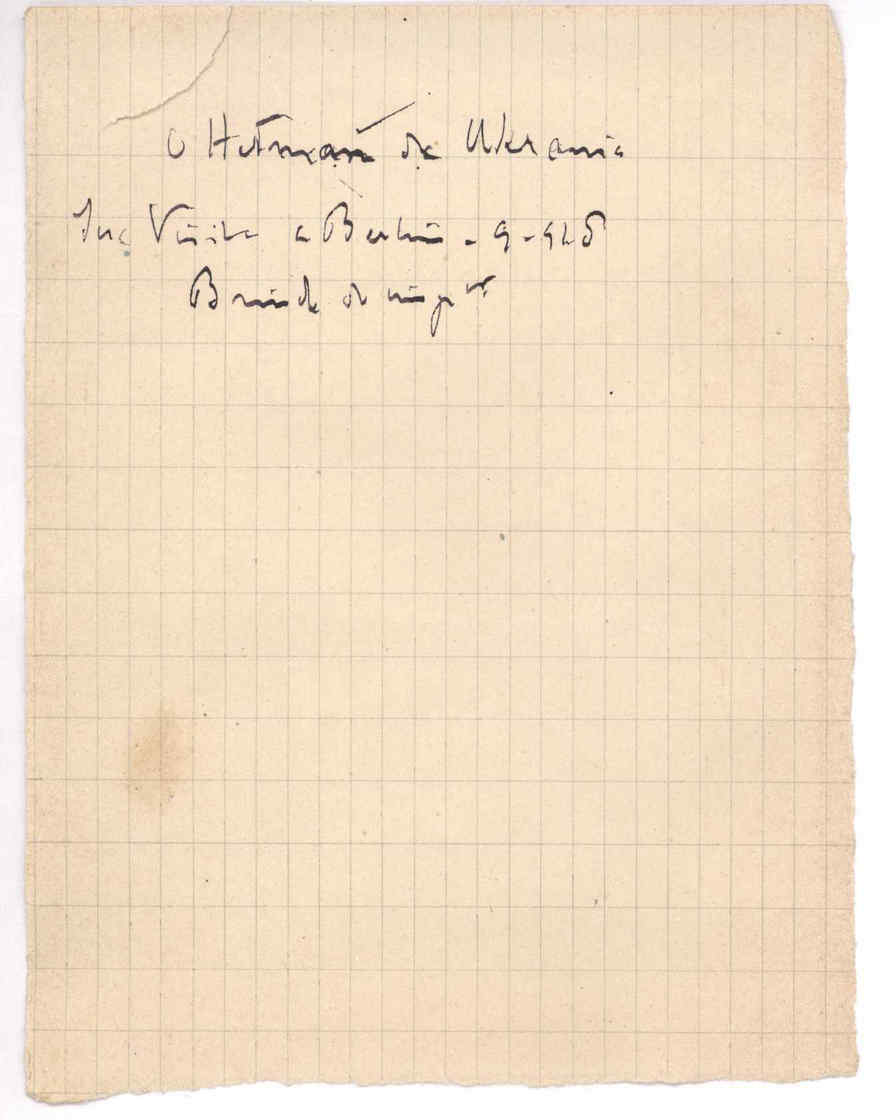 O Hetman de Ukrania
Sua Visita a Berlin - 9 - 918
Brinde do imp.or